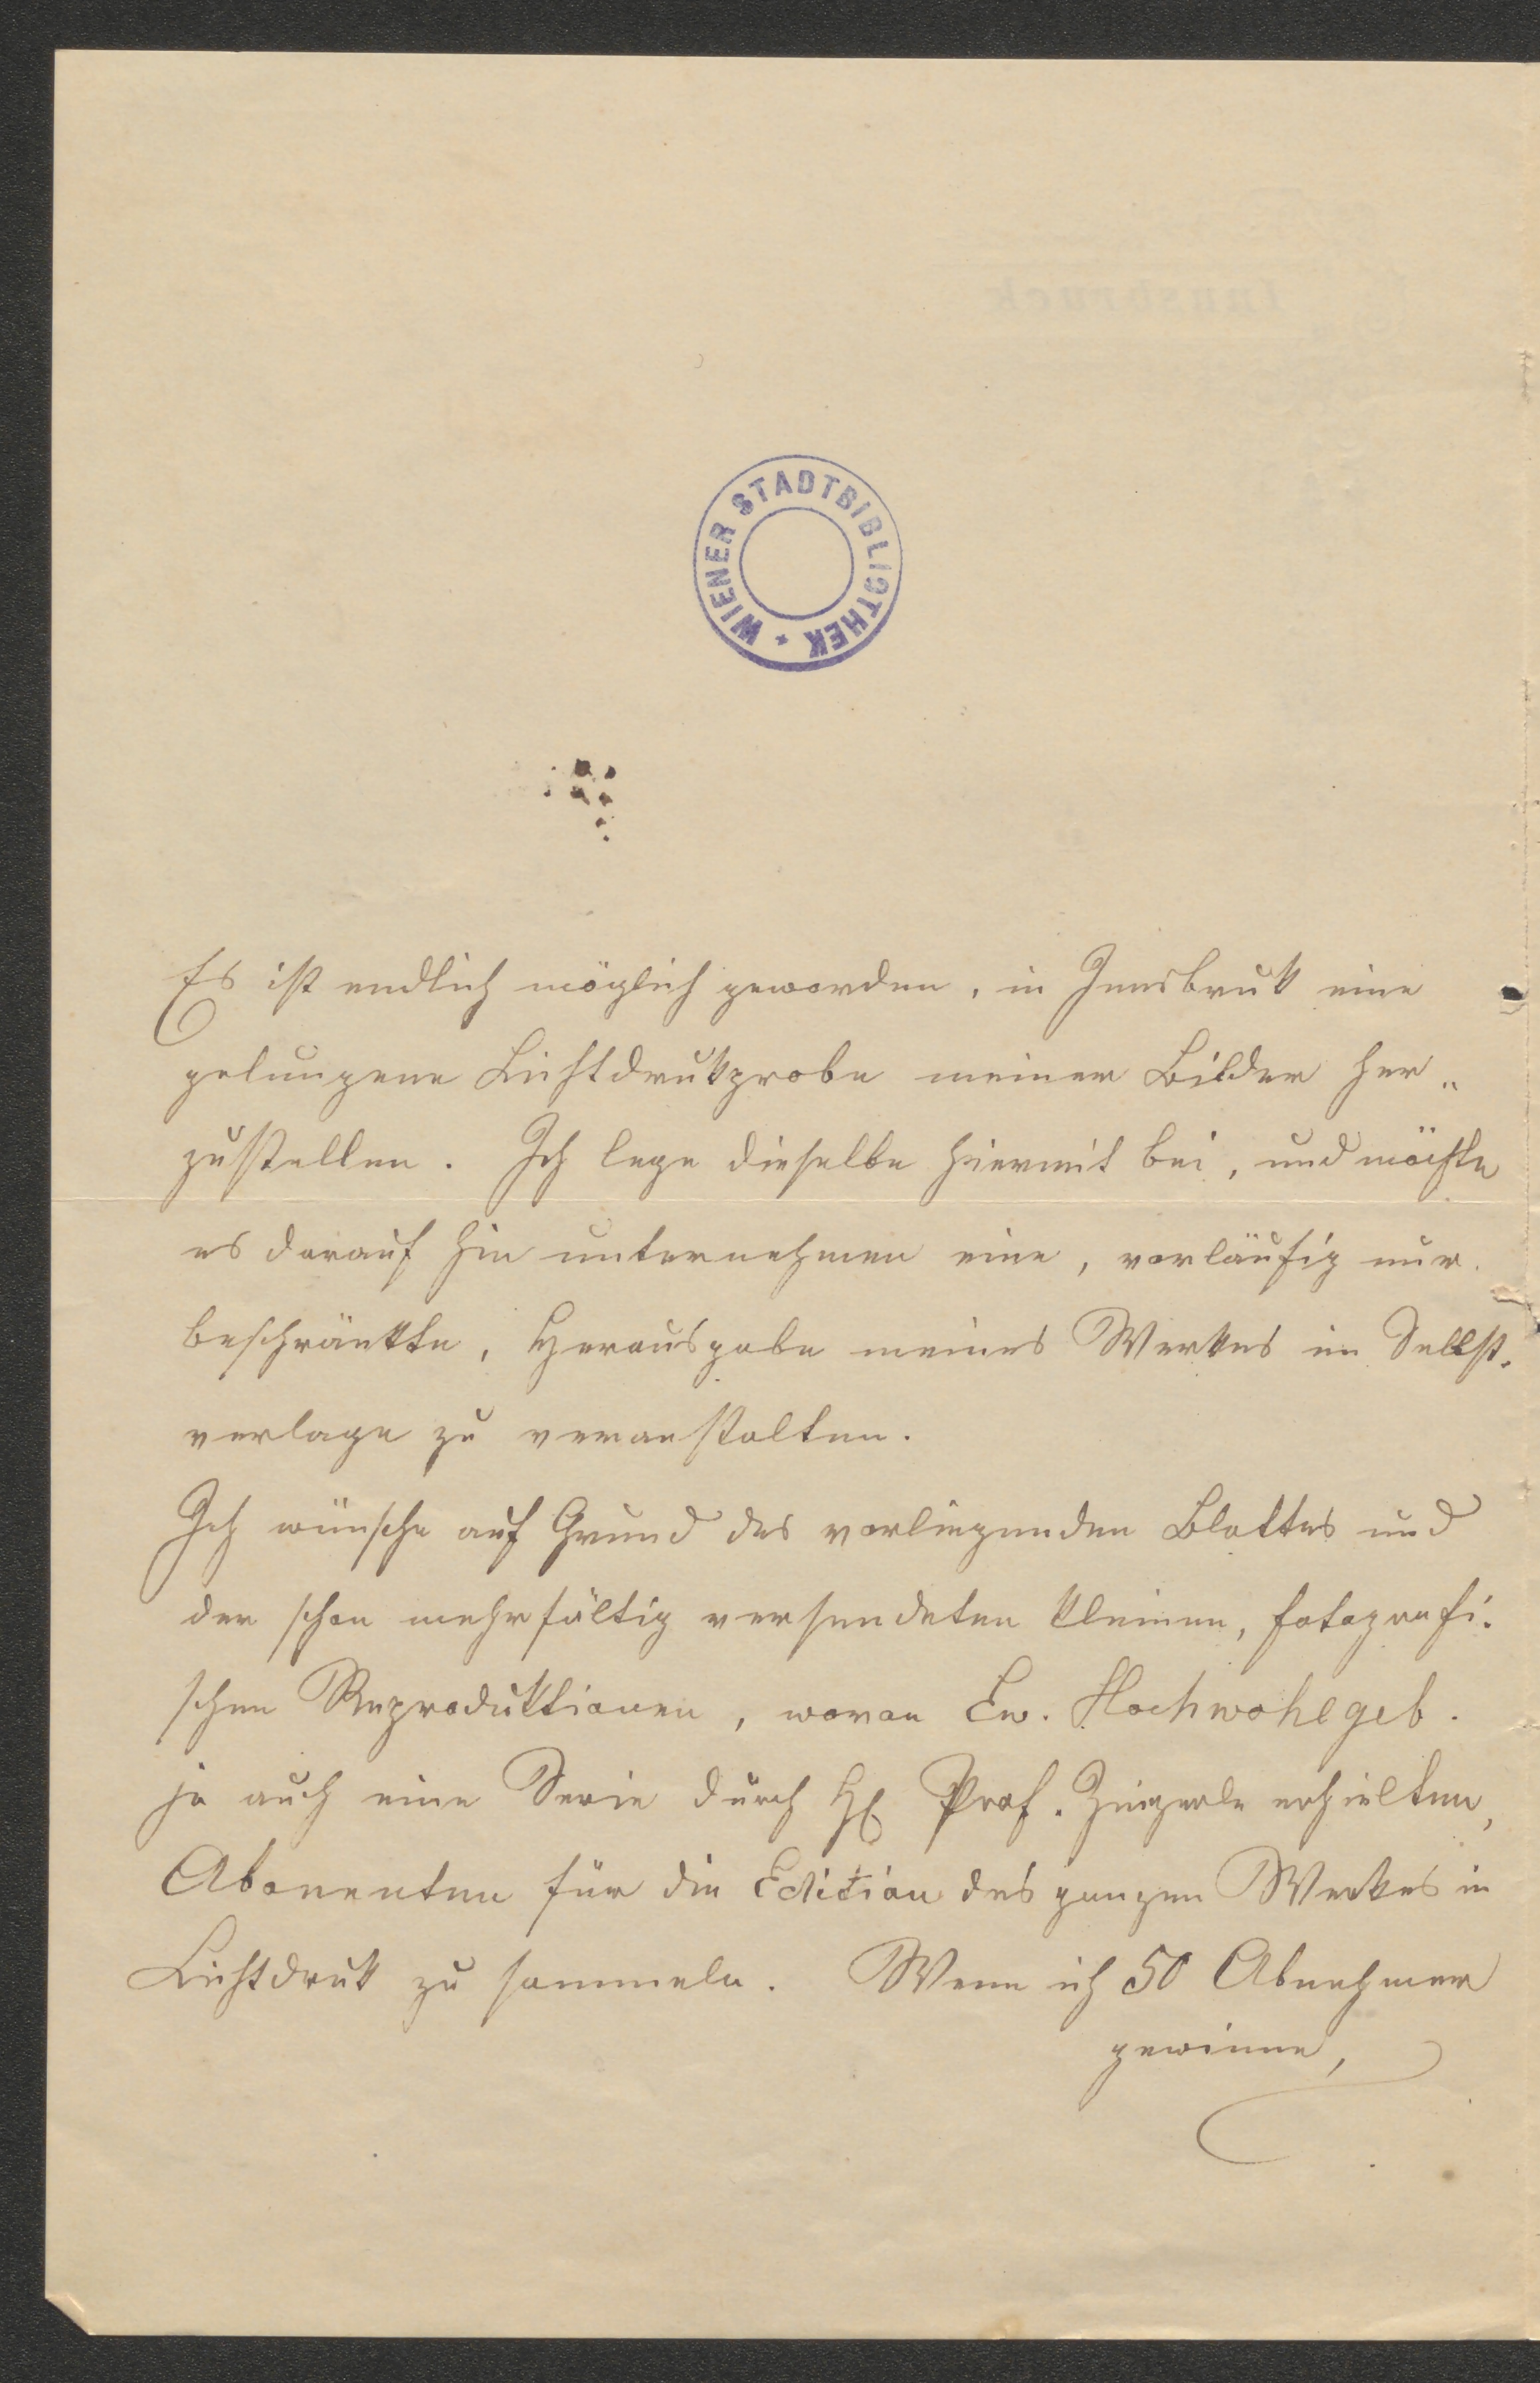 WIENER STADTBIBLIOTHEK *
Es ist endlich möglich geworden, in Innsbruk eine
gelungene Lichtdrukprobe meiner Bilder her„
zustellen. Ich lege dieselbe hiermit bei, und möchte
es darauf hin unternehmen eine, vorläufig nur
beschränkte, Herausgabe meines Werkes im Selbst„
verlage zu veranstalten.
Ich wünsche auf Grund des vorliegenden Blattes und
der schon mehrfältig versendeten kleinen, fotografi„
schen Reproduktionen, wovon Ew. Hochwohlgeb.
ja auch eine Serie durch H. Prof. Zingerle erhielten,
Abonenten für die Edition des ganzen Werkes in
Lichtdruk zu sammeln. Wenn ich 50 Abnehmer
gewinne,